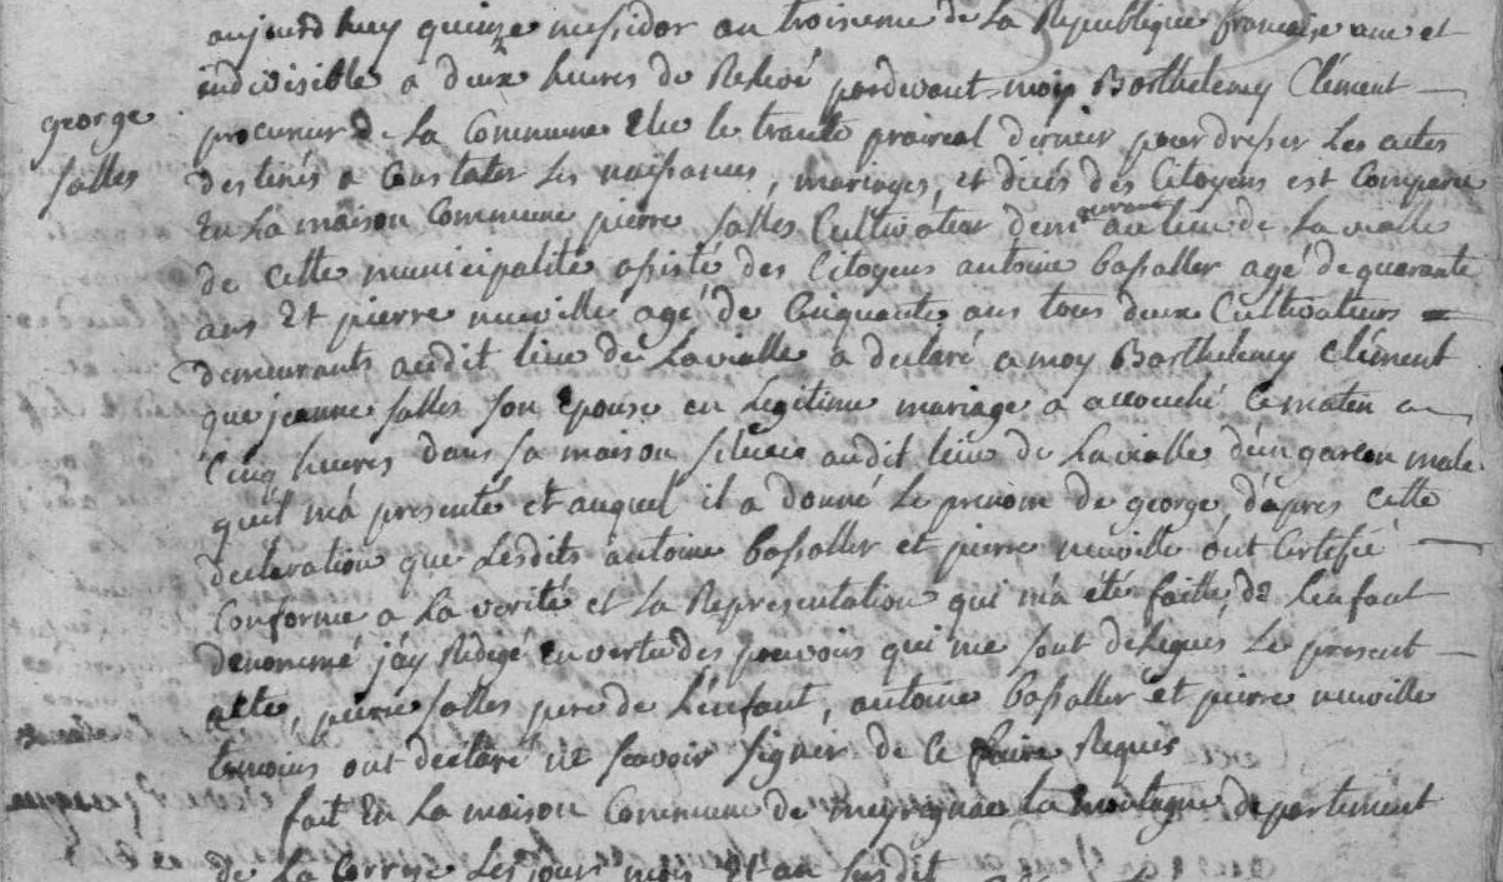 aujourd huy quinze messidor an troisieme de la Republique francaise une et
indivisible a deux heures de Relevé pardevant moy Barthelemy Clément
george
salles
procureur de la Commune Elu le trante praireal dernier pour dresser les actes
destinés a Constater les naissances, mariages, et décés des Citoyens est Comparu
En La maison Commune pierre salles Cultivateur demt au lieu de Lavialle
de cette municipalité assisté des Citoyens antoine bassaller agé de quarante
ans Et pierre neuville agé de Cinquante ans tous deux Cultivateurs
demeurants audit lieu de Lavialle a declaré a moy Barthelemy Clément
que jeanne salles son Epouse en Legitime mariage a accouché Ce matin a
Cinq heures dans sa maison situeé audit lieu de Lavialle d'un garcon male
qu'il m'a presenté et auquel il a donné le prenom de george, d'apres cette
declaration que Lesdits antoine bassaller et pierre neuville ont Certifié
Conforme a La verité et La Representation qui m'a été faitte de L'enfant
denommé j'ay Redigé En vertu des pouvoirs qui me sont delegués Le present
acte, pierre salles pere de L'enfant, antoine bassaller et pierre neuville
temoins ont declaré ne scavoir signer de Ce faire Requis
fait En La maison Commune de meyrignac la montagne departement
de La Correze Les jour mois Et an susdit